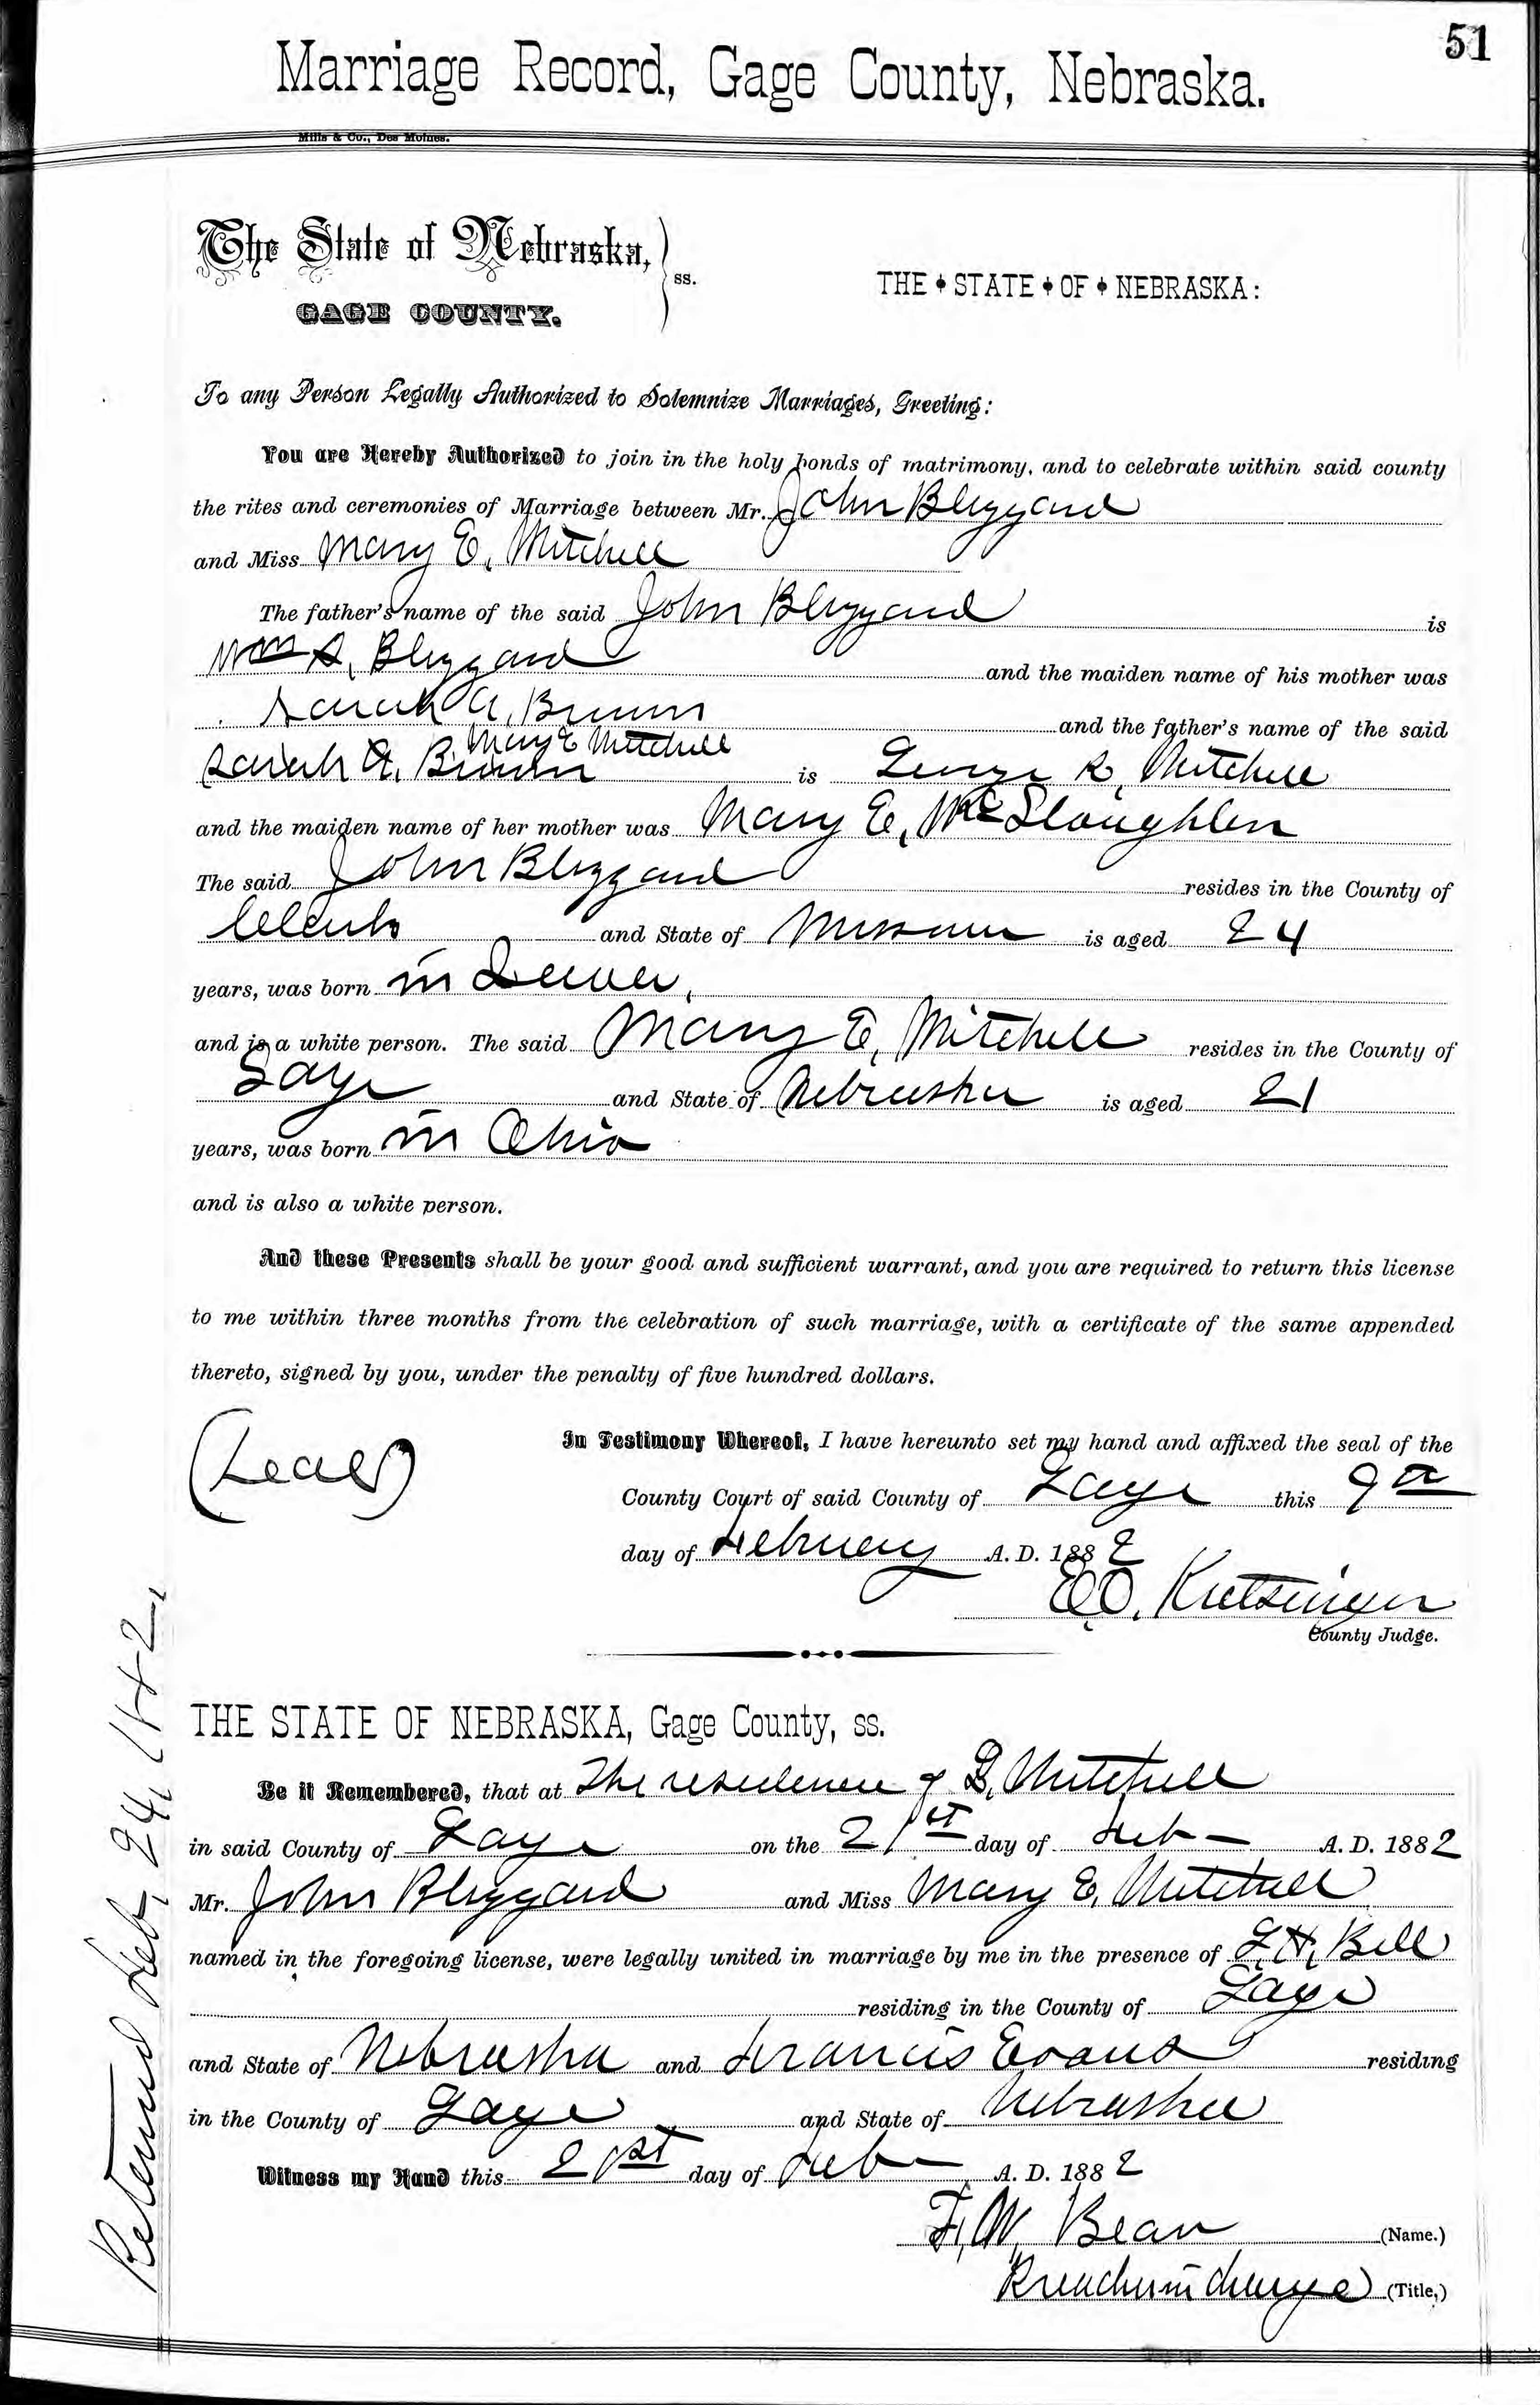 51
Marriage Record, Gage County, Nebraska.
Mills & Co., Des Moines.
The State of Nebraska,
GAGE COUNTY.
ss.
THE STATE OF NEBRASKA:
To any Person Legally Authorized to Solemnize Marriages, Greeting:
You are Hereby Authorized to join in the holy bonds of matrimony, and to celebrate within said county
the rites and ceremonies of Marriage between Mr. John Blizzard
and Miss Mary E. Mitchell
The father's name of the said John Blizzard is
Wm A. Blizzard and the maiden name of his mother was
Sarah A. Brown and the father's name of the said
Mary E Mitchell
Sarah A. Brown is George R. Mitchell
and the maiden name of her mother was Mary E. McSloughlen
The said John Blizzard resides in the County of
and State of Missouri is aged 24
years, was born in
and is a white person. The said Mary E. Mitchell resides in the County of
Gage and State of Nebraska is aged 21
years, was born in Ohio
and is also a white person.
And these Presents shall be your good and sufficient warrant, and you are required to return this license
to me within three months from the celebration of such marriage, with a certificate of the same appended
thereto, signed by you, under the penalty of five hundred dollars.
(Seal)
In Testimony Whereof, I have hereunto set my hand and affixed the seal of the
County Court of said County of Gage this 9th
day of February A. D. 1882
E.O. Kretsinger
County Judge.
THE STATE OF NEBRASKA, Gage County, ss.
Be it Remembered, that at The residence of Mitchell
in said County of Gage on the 21st day of Feb A. D. 1882
Mr. John Blizzard and Miss Mary E. Mitchell
named in the foregoing license, were legally united in marriage by me in the presence of H. Bell
residing in the County of Gage
and State of Nebraska and Francis Evans residing
in the County of Gage and State of Nebraska
Witness my Hand this 21st day of Feb A. D. 1882
F. W. Bean (Name.)
Preacher in charge (Title,)
Returned Feb, 24